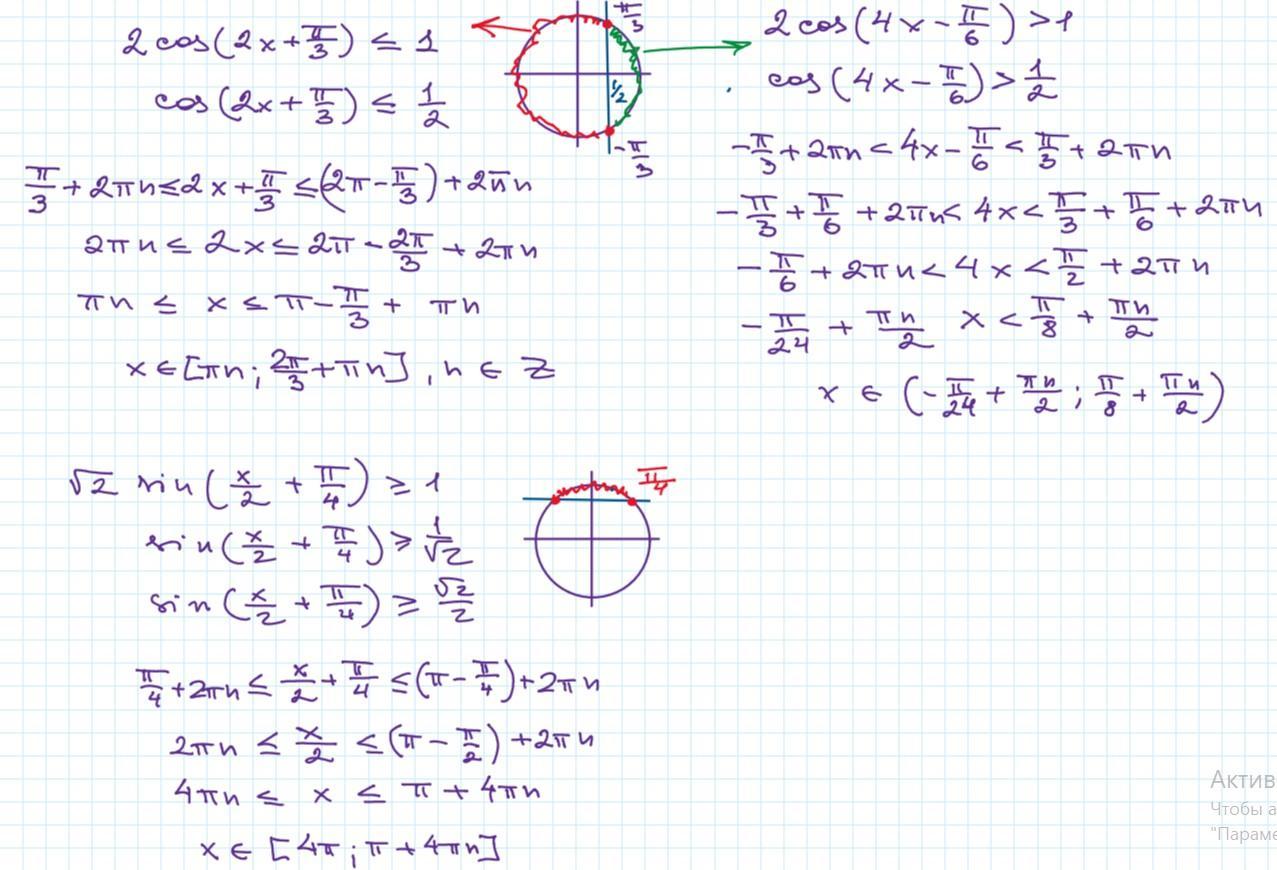 2 cos(2x + π/3) ≤ 1
cos(2x + π/3) ≤ 1/2
π/3 + 2πn ≤ 2x + π/3 ≤ (2π - π/3) + 2πn
2πn ≤ 2x ≤ 2π - 2π/3 + 2πn
πn ≤ x ≤ π - π/3 + πn
x ∈ [πn; 2π/3 + πn], n ∈ Z
π/3
1/2
-π/3
2 cos(4x - π/6) > 1
cos(4x - π/6) > 1/2
-π/3 + 2πn < 4x - π/6 < π/3 + 2πn
-π/3 + π/6 + 2πn < 4x < π/3 + π/6 + 2πn
-π/6 + 2πn < 4x < π/2 + 2πn
-π/24 + πn/2 x < π/8 + πn/2
x ∈ (-π/24 + πn/2; π/8 + πn/2)
√2 sin(x/2 + π/4) ≥ 1
sin(x/2 + π/4) ≥ 1/√2
sin(x/2 + π/4) ≥ √2/2
π/4
π/4 + 2πn ≤ x/2 + π/4 ≤ (π - π/4) + 2πn
2πn ≤ x/2 ≤ (π - π/2) + 2πn
4πn ≤ x ≤ π + 4πn
x ∈ [4π; π + 4πn]
Актив
Чтобы а
"Параме